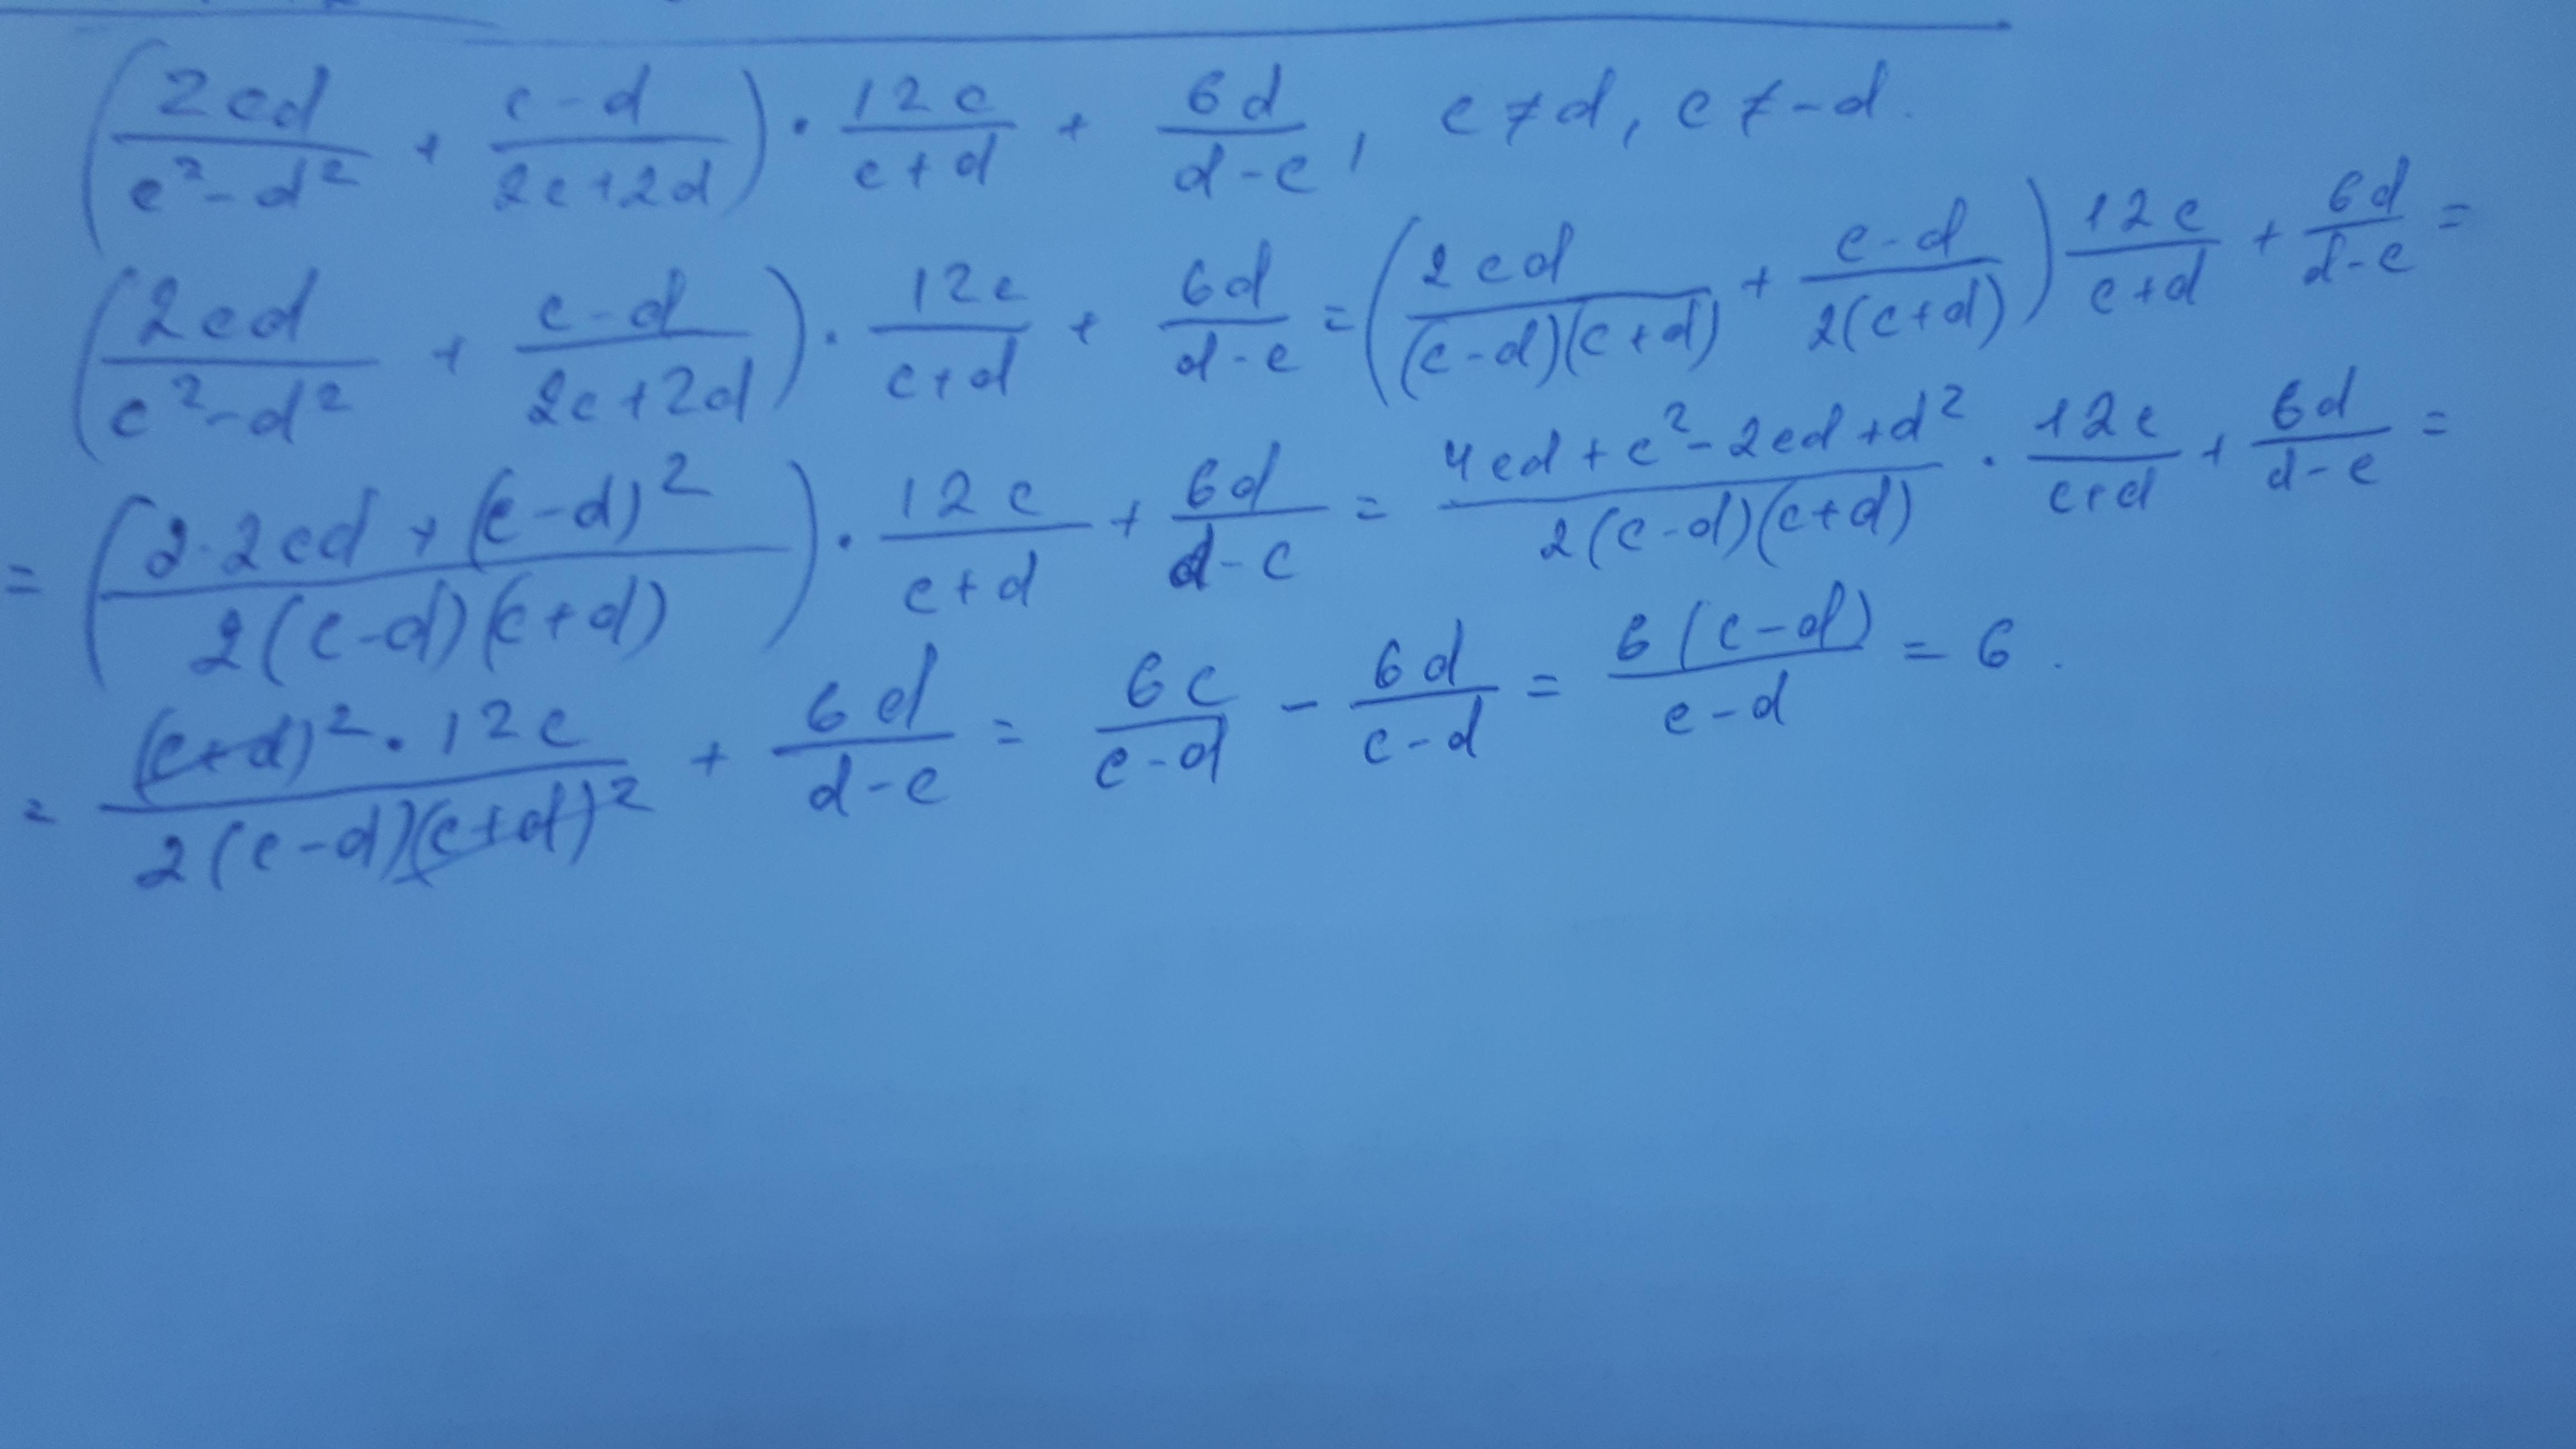 (2cd/(c²-d²) + (c-d)/(2c+2d)) · 12c/(c+d) + 6d/(d-c), c≠d, c≠-d.
(2cd/(c²-d²) + (c-d)/(2c+2d)) · 12c/(c+d) + 6d/(d-c) = (2cd/((c-d)(c+d)) + (c-d)/(2(c+d))) 12c/(c+d) + 6d/(d-c) =
= ((2·2cd+(c-d)²)/(2(c-d)(c+d))) · 12c/(c+d) + 6d/(d-c) = (4cd+c²-2cd+d²)/(2(c-d)(c+d)) · 12c/(c+d) + 6d/(d-c) =
= ((c+d)²·12c)/(2(c-d)(c+d)²) + 6d/(d-c) = 6c/(c-d) - 6d/(c-d) = 6(c-d)/(c-d) = 6.